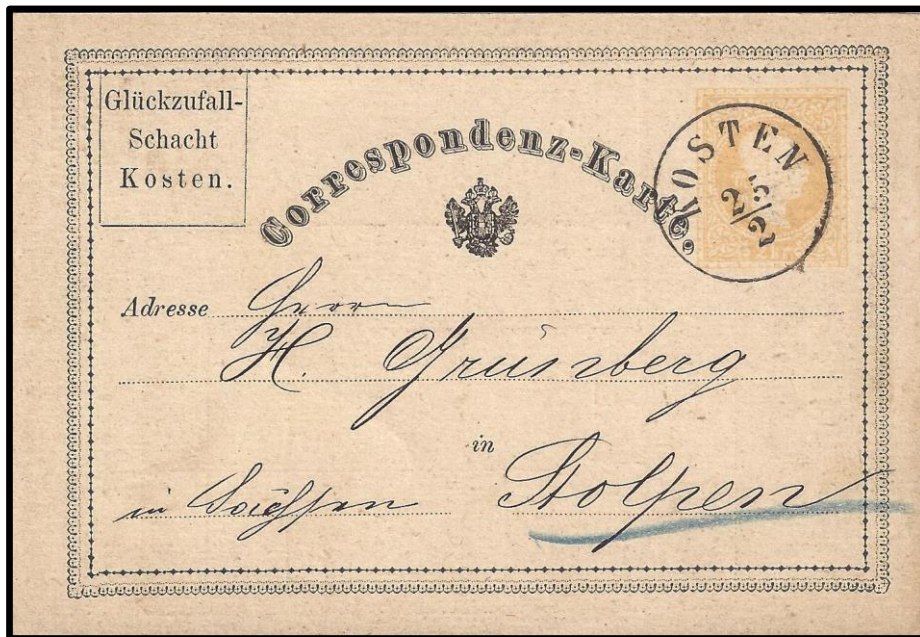 Glückzufall-
Schacht
Kosten.
Correspondenz-Karte.
KOSTEN
2/5
Adresse Herrn
H. Grünberg
in
in Sachsen Stolpen